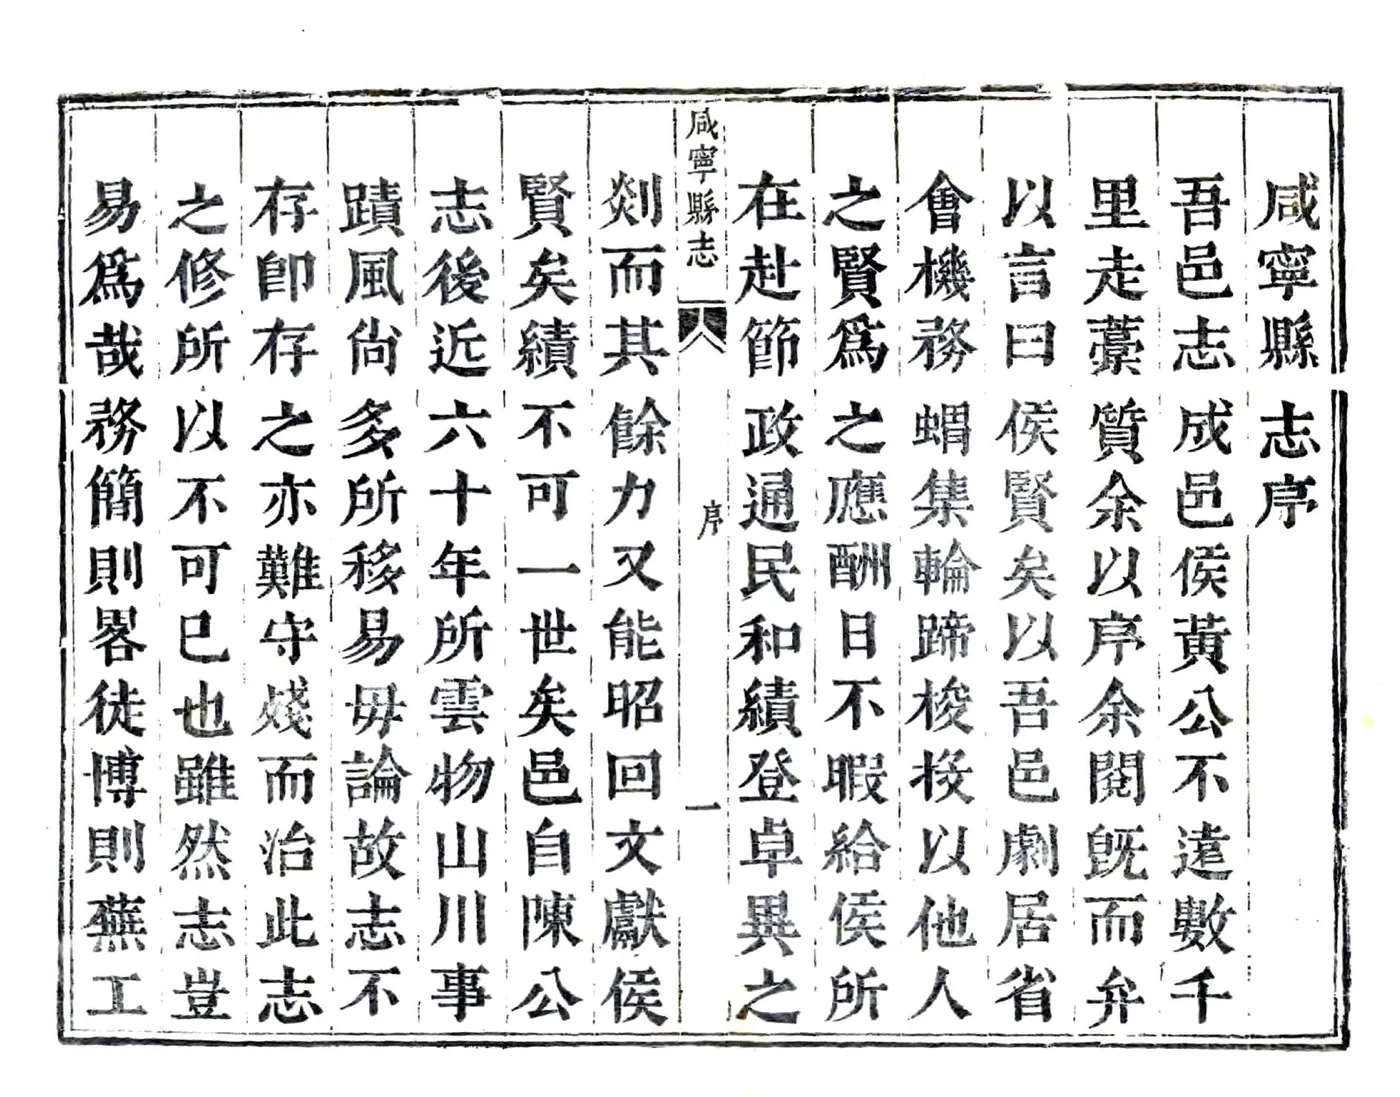 咸寧縣志序
吾邑志成邑侯黃公不遠數千
里走藁質余以序余閱旣而弁
以言曰侯賢矣以吾邑劇居省
會機務蝟集輪蹄梭投以他人
之賢爲之應酬日不暇給侯所
在赴節政通民和績登卓異之
咸寧縣志
序
一
剡而其餘力又能昭回文獻侯
賢矣績不可一世矣邑自陳公
志後近六十年所雲物山川事
蹟風尙多所移易毋論故志不
存卽存之亦難守殘而治此志
之修所以不可已也雖然志豈
易爲哉務簡則畧徒博則蕪工